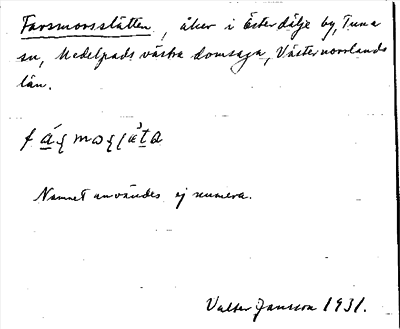 Farsmorsslåtten, åker i Österdälje by, Tuna
sn, Medelpads västra domsaga, Västernorrlands
län.
Namnet användes ej numera.
Valter Jansson 1931.